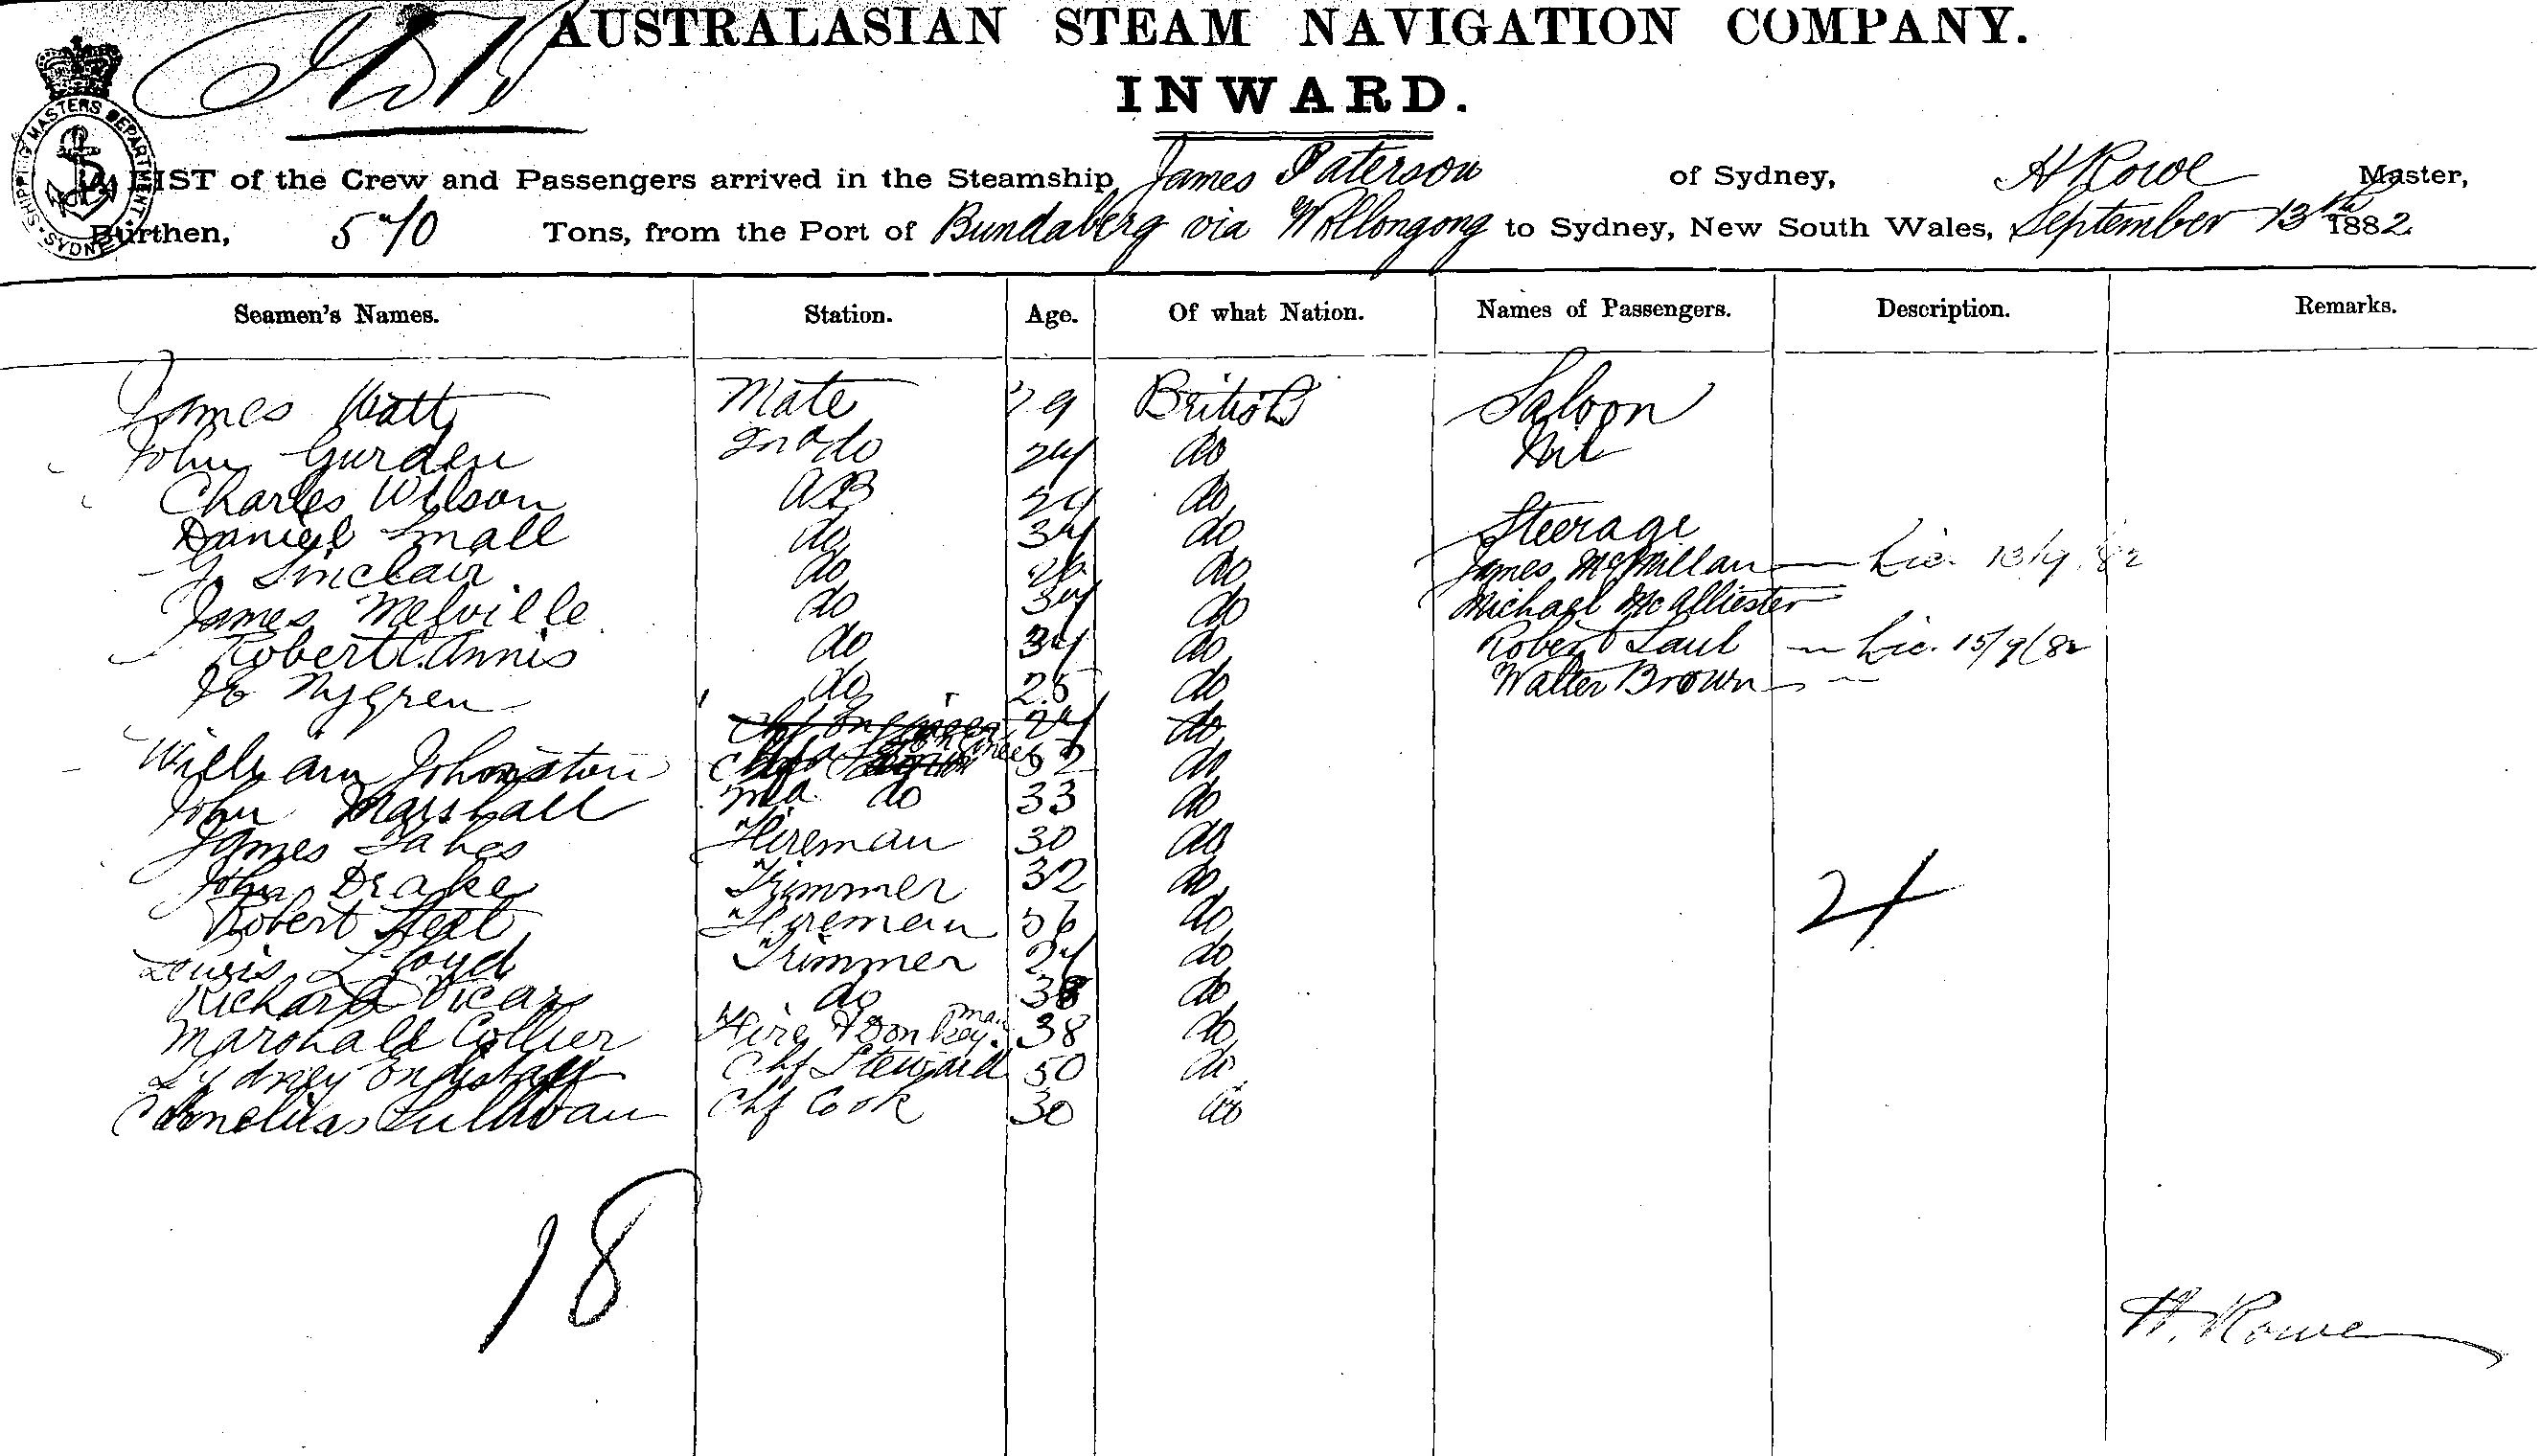 AUSTRALASIAN STEAM NAVIGATION COMPANY.
INWARD.
SHIPPING MASTERS DEPARTMENT SYDNEY
LIST of the Crew and Passengers arrived in the Steamship James Paterson of Sydney, H Rowe Master,
Burthen, 570 Tons, from the Port of Bundaberg via Wollongong to Sydney, New South Wales, September 13th 1882
Seamen's Names. Station. Age. Of what Nation. Names of Passengers. Description. Remarks.
James Watt Mate 29 British Saloon
John Gurden 2nd do 24 do Nil
Charles Wilson AB 24 do
Daniel Small do 34 do Steerage
Sinclair do 26 do James McMillan Lic. 13/9/82
James Melville do 34 do Michael McAlliester
Robert C. Annis do 34 do Robert Saul Lic. 15/9/82
Nygren do 25 do Walter Brown
Chf Engineer 24 do
William Johnston Chf Engineer 52 do
John Marshall 2nd do 33 do
James Fireman 30 do
John Drake Trimmer 32 do
Robert Steel Fireman 36 do
Lewis Lloyd Trimmer 24 do
Richard Vicars do 38 do
Marshall Collier Fire & Donkeyman 38 do
Sydney Chf Steward 50 do
Cornelius Sullivan Chf Cook 30 do
18
H. Rowe